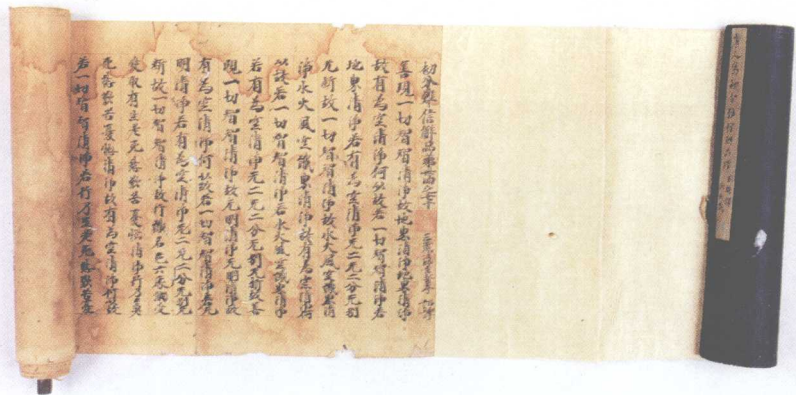 初分難信解品第
善現一切智智清淨故地界清淨地界清淨
故有為空清淨何以故若一切智智清淨若
地界清淨若有為空清淨无二无二分无別
无斷故一切智智清淨故水火風空識界清
淨水火風空識界清淨故有為空清淨何
以故若一切智智清淨若水火風空識界清淨
若有為空清淨无二无二分无別无斷故善
現一切智智清淨故无明清淨无明清淨故
有為空清淨何以故若一切智智清淨若无
明清淨若有為空清淨无二无二分无別无
斷故一切智智清淨故行識名色六處觸受
愛取有生老死愁歎苦憂惱清淨行乃至老
死愁歎苦憂惱清淨故有為空清淨何以故
若一切智智清淨若行乃至老死愁歎苦憂